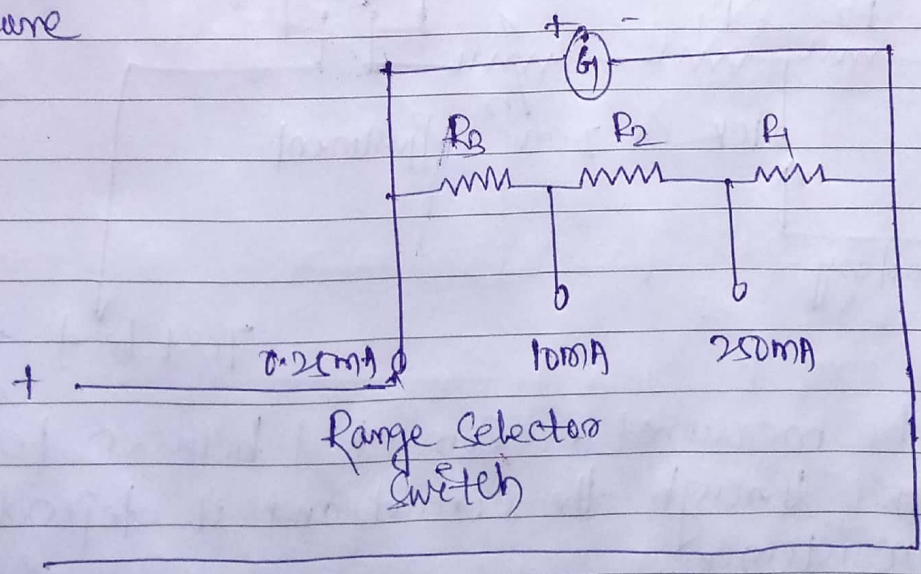 ure
+ -
G
R3 R2 R1
0.25mA 10mA 250mA
+
Range Selector
Switch